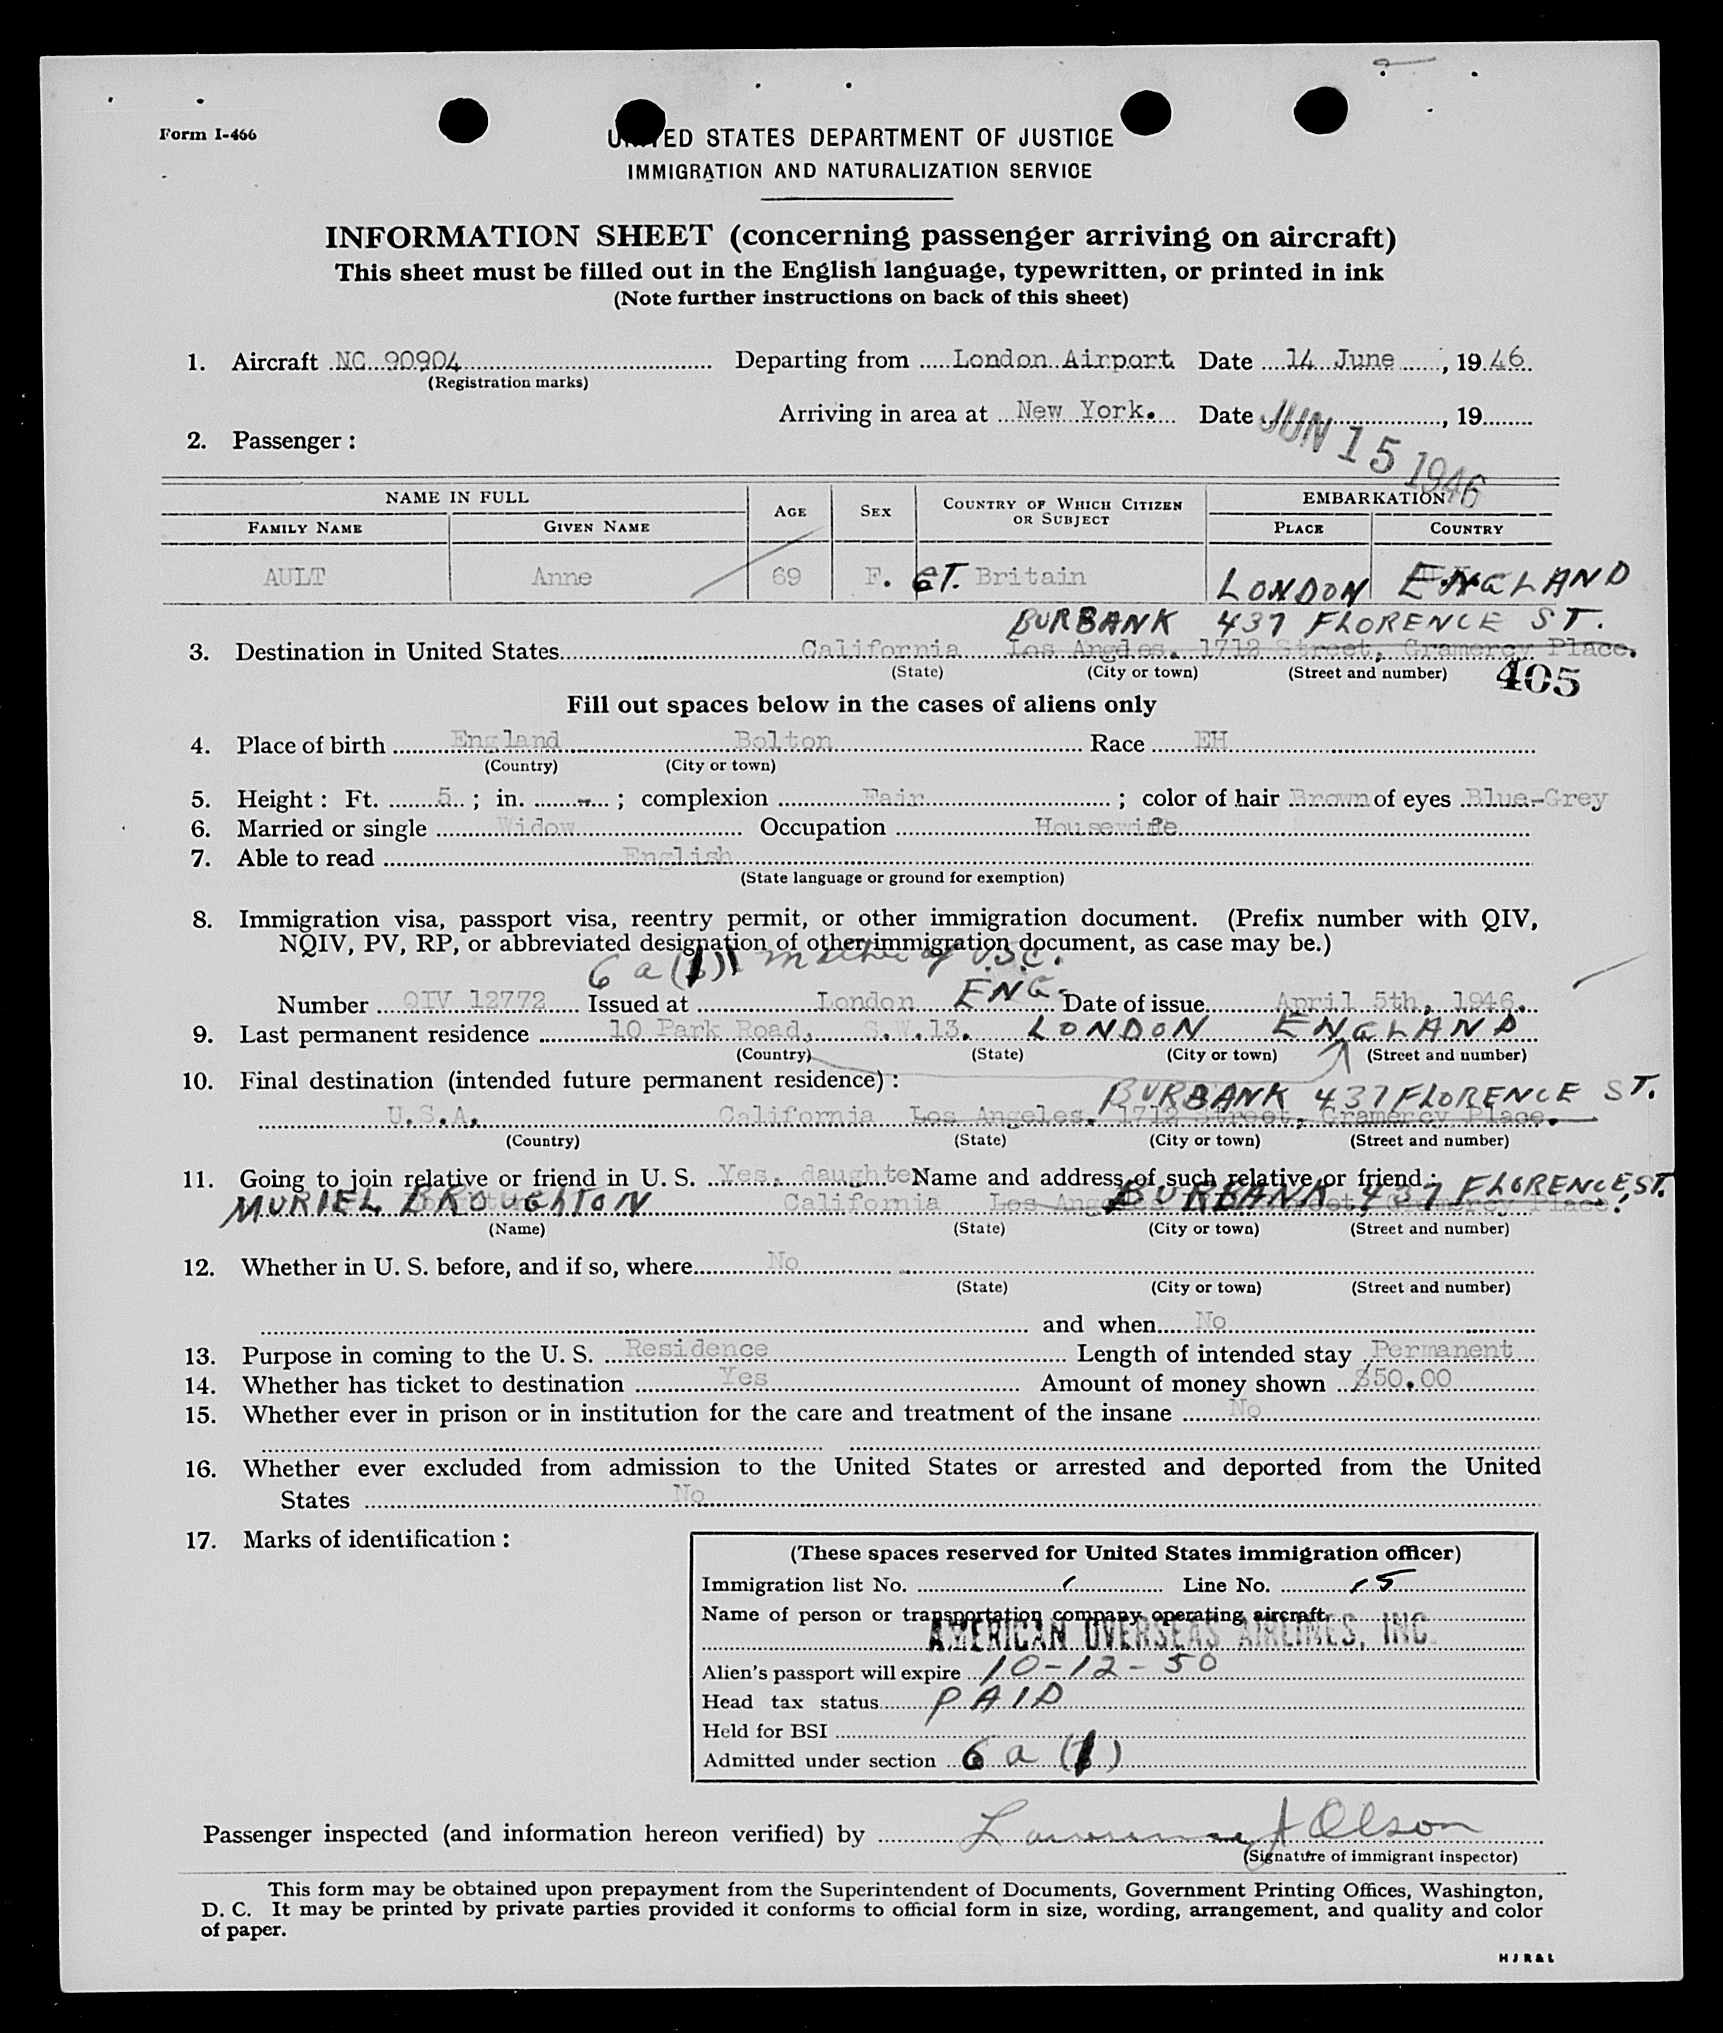 Form I-466
UNITED STATES DEPARTMENT OF JUSTICE
IMMIGRATION AND NATURALIZATION SERVICE
INFORMATION SHEET (concerning passenger arriving on aircraft)
This sheet must be filled out in the English language, typewritten, or printed in ink
(Note further instructions on back of this sheet)
1. Aircraft NC 90904 Departing from London Airport Date 14 June, 1946
(Registration marks)
Arriving in area at New York. Date , 19
JUN 15 1946
2. Passenger :
NAME IN FULL AGE SEX COUNTRY OF WHICH CITIZEN OR SUBJECT EMBARKATION
FAMILY NAME GIVEN NAME PLACE COUNTRY
AULT Anne 69 F. GT. Britain LONDON ENGLAND
BURBANK 437 FLORENCE ST.
3. Destination in United States California Los Angeles. 1712 Street, Gramercy Place.
(State) (City or town) (Street and number) 405
Fill out spaces below in the cases of aliens only
4. Place of birth England Bolton Race EH
(Country) (City or town)
5. Height : Ft. 5 ; in. - ; complexion Fair ; color of hair Brown of eyes Blue-Grey
6. Married or single Widow Occupation Housewife
7. Able to read English
(State language or ground for exemption)
8. Immigration visa, passport visa, reentry permit, or other immigration document. (Prefix number with QIV,
NQIV, PV, RP, or abbreviated designation of other immigration document, as case may be.)
6 a (1) mother of U.S.C.
Number QIV 12772 Issued at London ENG. Date of issue April 5th, 1946.
9. Last permanent residence 10 Park Road, S.W.13. LONDON ENGLAND
(Country) (State) (City or town) (Street and number)
10. Final destination (intended future permanent residence) :
BURBANK 437 FLORENCE ST.
U.S.A. California Los Angeles. 1712 Street, Gramercy Place.
(Country) (State) (City or town) (Street and number)
11. Going to join relative or friend in U. S. Yes, daughte Name and address of such relative or friend :
MURIEL BROUGHTON California Los Angeles BURBANK, 437 FLORENCE, ST. Gramercy Place.
(Name) (State) (City or town) (Street and number)
12. Whether in U. S. before, and if so, where No
(State) (City or town) (Street and number)
and when No
13. Purpose in coming to the U. S. Residence Length of intended stay Permanent
14. Whether has ticket to destination Yes Amount of money shown $50.00
15. Whether ever in prison or in institution for the care and treatment of the insane No
16. Whether ever excluded from admission to the United States or arrested and deported from the United
States No
17. Marks of identification :
(These spaces reserved for United States immigration officer)
Immigration list No. 1 Line No. 15
Name of person or transportation company operating aircraft
AMERICAN OVERSEAS AIRLINES, INC.
Alien's passport will expire 10-12-50
Head tax status PAID
Held for BSI
Admitted under section 6 a (1)
Passenger inspected (and information hereon verified) by Lawrence A Olson
(Signature of immigrant inspector)
This form may be obtained upon prepayment from the Superintendent of Documents, Government Printing Offices, Washington,
D. C. It may be printed by private parties provided it conforms to official form in size, wording, arrangement, and quality and color
of paper.
H J R & L